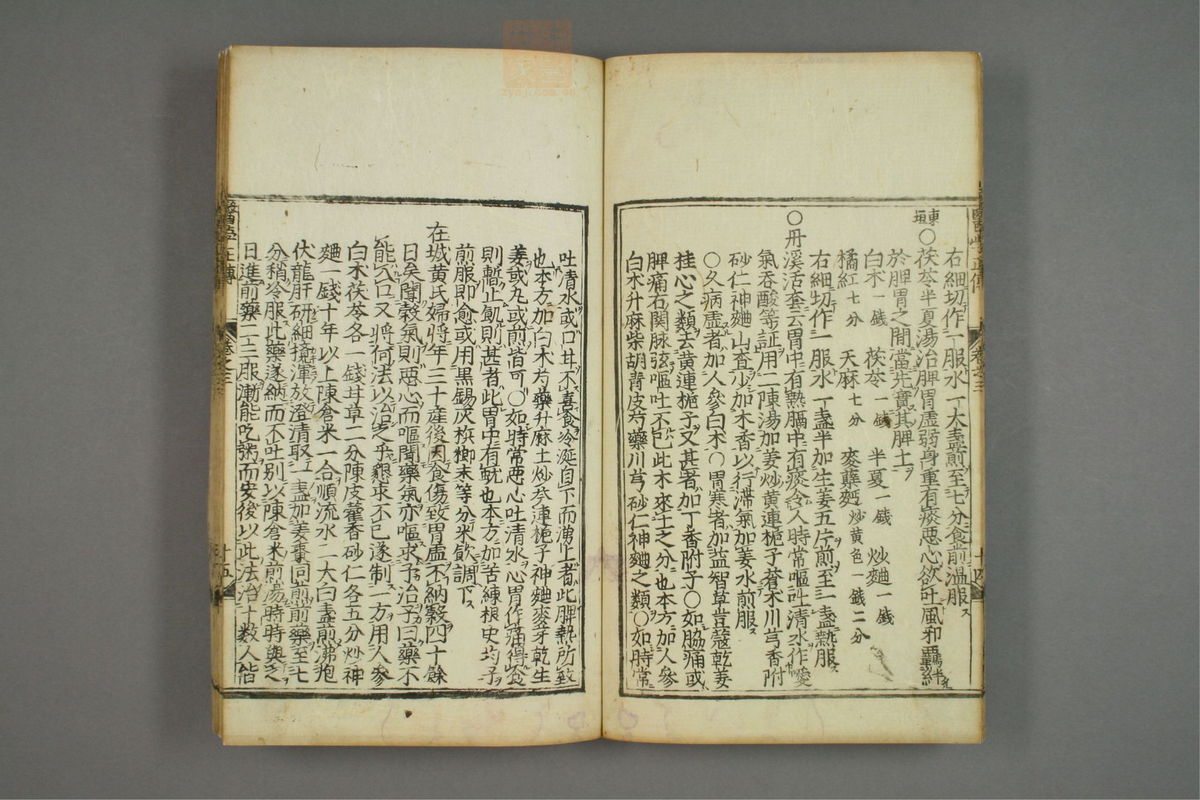 右細切作一服水一大盞煎至七分食前溫服
東垣○茯苓半夏湯治脾胃虛弱身重有痰惡心欲吐風邪羈絆
於脾胃之間當先實其脾土
白朮一錢 茯苓一錢 半夏一錢 炒麯一錢
橘紅七分 天麻七分 麥蘖麪炒黃色一錢二分
右細切作一服水一盞半加生姜五片煎至一盞熱服
○丹溪活套云胃中有熱膈中有痰令人時常嘔吐清水作噯
氣吞酸等証用二陳湯加姜炒黃連梔子蒼朮川芎香附
砂仁神麯山查少加木香以行滯氣加姜水煎服
○久病虛者加人參白朮○胃寒者加益智草荳蔻乾姜
桂心之類去黃連梔子又甚者加丁香附子○如脇痛或
脾痛右関脉弦嘔吐不已此木來土之分也本方加人參
白朮升麻柴胡青皮芍藥川芎砂仁神麯之類○如時常
吐清水或口甘不喜食冷涎自下而湧上者此脾熱所致
也本方加白朮芍藥升麻土炒芩連梔子神麯麥牙乾生
姜或丸或煎皆可○如時常惡心吐清水心胃作痛得食
則暫止飢則甚者此胃中有蚘也本方加苦練根史均子
煎服即愈或用黑錫灰梹榔末等分米飲調下
在城黃氏婦將年三十產後因食傷致胃虛不納穀四十餘
日矣聞穀氣則惡心而嘔聞藥氣亦嘔求予治予曰藥不
能入口又將何法以治之乎懇求不已遂制一方用人參
白朮茯苓各一錢甘草二分陳皮藿香砂仁各五分炒神
麯一錢十年以上陳倉米一合順流水二大白盞煎沸抱
伏龍肝研細攪渾放澄清取一盞加姜棗同煎前藥至七
分稍冷服此藥遂納而不吐別以陳倉米煎湯時時與之
日進前藥二三服漸能吃粥而安後以此法治十數人皆